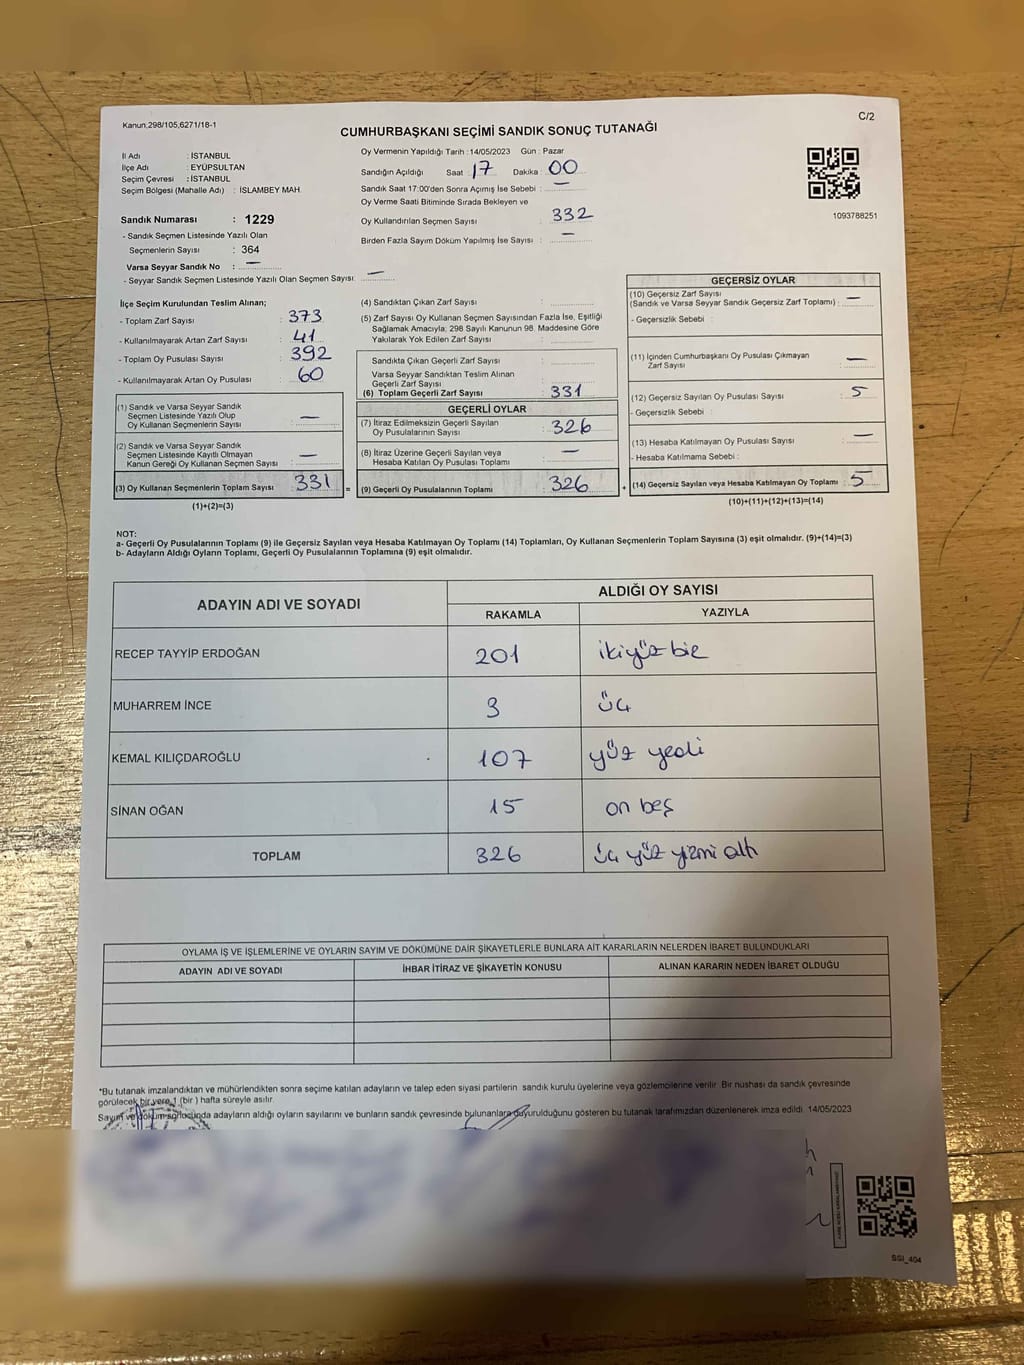 Kanun;298/105,6271/18-1
C/2
CUMHURBAŞKANI SEÇİMİ SANDIK SONUÇ TUTANAĞI
İl Adı : İSTANBUL
İlçe Adı : EYÜPSULTAN
Seçim Çevresi : İSTANBUL
Seçim Bölgesi (Mahalle Adı) : İSLAMBEY MAH.
Sandık Numarası : 1229
- Sandık Seçmen Listesinde Yazılı Olan
Seçmenlerin Sayısı : 364
Varsa Seyyar Sandık No : —
- Seyyar Sandık Seçmen Listesinde Yazılı Olan Seçmen Sayısı: —
Oy Vermenin Yapıldığı Tarih :14/05/2023 Gün : Pazar
Sandığın Açıldığı Saat : 17 Dakika : 00
Sandık Saat 17:00'den Sonra Açımış İse Sebebi : —
Oy Verme Saati Bitiminde Sırada Bekleyen ve
Oy Kullandırılan Seçmen Sayısı : 332
Birden Fazla Sayım Döküm Yapılmış İse Sayısı : —
1093788251
İlçe Seçim Kurulundan Teslim Alınan;
- Toplam Zarf Sayısı : 373
- Kullanılmayarak Artan Zarf Sayısı : 41
- Toplam Oy Pusulası Sayısı : 392
- Kullanılmayarak Artan Oy Pusulası : 60
(1) Sandık ve Varsa Seyyar Sandık
Seçmen Listesinde Yazılı Olup
Oy Kullanan Seçmenlerin Sayısı : —
(2) Sandık ve Varsa Seyyar Sandık
Seçmen Listesinde Kayıtlı Olmayan
Kanun Gereği Oy Kullanan Seçmen Sayısı : —
(3) Oy Kullanan Seçmenlerin Toplam Sayısı : 331 =
(1)+(2)=(3)
(4) Sandıktan Çıkan Zarf Sayısı :
(5) Zarf Sayısı Oy Kullanan Seçmen Sayısından Fazla İse, Eşitliği
Sağlamak Amacıyla; 298 Sayılı Kanunun 98. Maddesine Göre
Yakılarak Yok Edilen Zarf Sayısı :
Sandıkta Çıkan Geçerli Zarf Sayısı :
Varsa Seyyar Sandıktan Teslim Alınan
Geçerli Zarf Sayısı :
(6) Toplam Geçerli Zarf Sayısı : 331
GEÇERLİ OYLAR
(7) İtiraz Edilmeksizin Geçerli Sayılan
Oy Pusulalarının Sayısı : 326
(8) İtiraz Üzerine Geçerli Sayılan veya
Hesaba Katılan Oy Pusulası Toplamı : —
(9) Geçerli Oy Pusulalarının Toplamı : 326 +
GEÇERSİZ OYLAR
(10) Geçersiz Zarf Sayısı
(Sandık ve Varsa Seyyar Sandık Geçersiz Zarf Toplamı) : —
- Geçersizlik Sebebi :
(11) İçinden Cumhurbaşkanı Oy Pusulası Çıkmayan
Zarf Sayısı : —
(12) Geçersiz Sayılan Oy Pusulası Sayısı : 5
- Geçersizlik Sebebi :
(13) Hesaba Katılmayan Oy Pusulası Sayısı : —
- Hesaba Katılmama Sebebi :
(14) Geçersiz Sayılan veya Hesaba Katılmayan Oy Toplamı : 5
(10)+(11)+(12)+(13)=(14)
NOT:
a- Geçerli Oy Pusulalarının Toplamı (9) ile Geçersiz Sayılan veya Hesaba Katılmayan Oy Toplamı (14) Toplamları, Oy Kullanan Seçmenlerin Toplam Sayısına (3) eşit olmalıdır. (9)+(14)=(3)
b- Adayların Aldığı Oyların Toplamı, Geçerli Oy Pusulalarının Toplamına (9) eşit olmalıdır.
ADAYIN ADI VE SOYADI ALDIĞI OY SAYISI
RAKAMLA YAZIYLA
RECEP TAYYİP ERDOĞAN 201 ikiyüz bir
MUHARREM İNCE 3 üç
KEMAL KILIÇDAROĞLU 107 yüz yedi
SİNAN OĞAN 15 on beş
TOPLAM 326 üç yüz yirmi altı
OYLAMA İŞ VE İŞLEMLERİNE VE OYLARIN SAYIM VE DÖKÜMÜNE DAİR ŞİKAYETLERLE BUNLARA AİT KARARLARIN NELERDEN İBARET BULUNDUKLARI
ADAYIN ADI VE SOYADI İHBAR İTİRAZ VE ŞİKAYETİN KONUSU ALINAN KARARIN NEDEN İBARET OLDUĞU
*Bu tutanak imzalandıktan ve mühürlendikten sonra seçime katılan adayların ve talep eden siyasi partilerin sandık kurulu üyelerine veya gözlemcilerine verilir. Bir nushası da sandık çevresinde
görülecek bir yere 1 (bir ) hafta süreyle asılır.
Sayım ve döküm sonucunda adayların aldığı oyların sayılarını ve bunların sandık çevresinde bulunanlara duyurulduğunu gösteren bu tutanak tarafımızdan düzenlenerek imza edildi. 14/05/2023
SGI_404